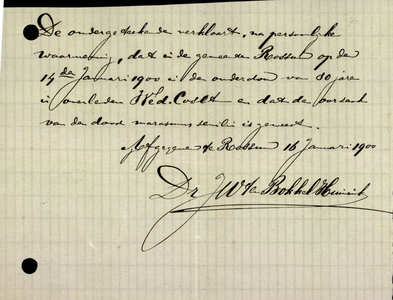 De ondergeteekende verklaart, na persoonlijke
waarneming, dat in de gemeente Rossum op de
14de Januari 1900 in den ouderdom van 80 jare
is overleden Wed. en dat de oorzaak
van de dood marasmus senilis is geweest.
Afgegeve te Rossum 16 Januari 1900
Dr JW ten Bokkel Huinink